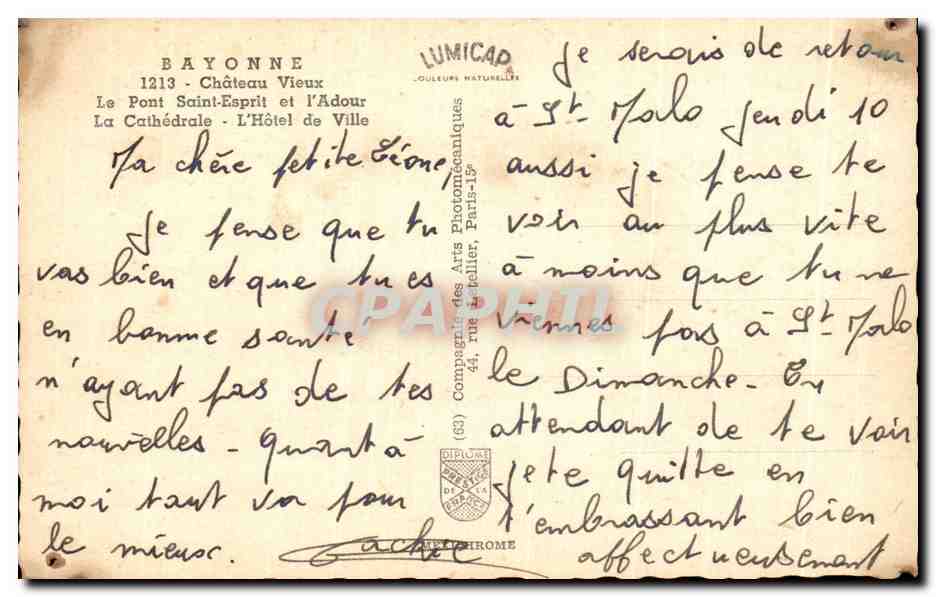 BAYONNE
1213 - Château Vieux
Le Pont Saint-Esprit et l'Adour
La Cathédrale - L'Hôtel de Ville
LUMICAP
COULEURS NATURELLES
Ma chère petite Léone,
je pense que tu
vas bien et que tu es
en bonne santé
n'ayant pas de tes
nouvelles - Quant à
moi tout va pour
le mieux.
(63) Compagnie des Arts Photomécaniques
44, rue Letellier, Paris-15e
CPAPHIL
DIPLOME
PRESTIGE
DE LA
FRANCE
CHROME
je serais de retour
à St Malo jeudi 10
aussi je pense te
voir au plus vite
à moins que tu ne
viennes pas à St Malo
le Dimanche - En
attendant de te voir
je te quitte en
t'embrassant bien
affectueusement